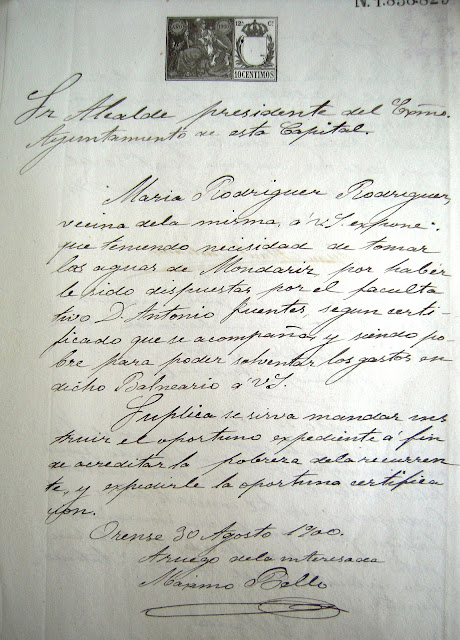 N. 1.838.829
12ª Cª
10 CENTIMOS
Sr Alcalde presidente del Exmo.
Ayuntamiento de esta Capital.
Maria Rodriguez Rodriguez,
vecina de la misma, á V.S. expone:
que teniendo necisidad de tomar
las aguas de Mondariz por haber
le sido dispuestas por el faculta
tivo D. Antonio Fuentes, segun certi-
ficado que se acompaña, y siendo po-
bre para poder solventar los gastos en
dicho Balneario á V.S.
Suplica se sirva mandar ins
truir el oportuno expediente á fin
de acreditar la pobreza de la recurren
te, y expedirle la oportuna certifica
cion.
Orense 30 Agosto 1900.
A ruego de la interesada
Maximo Bello